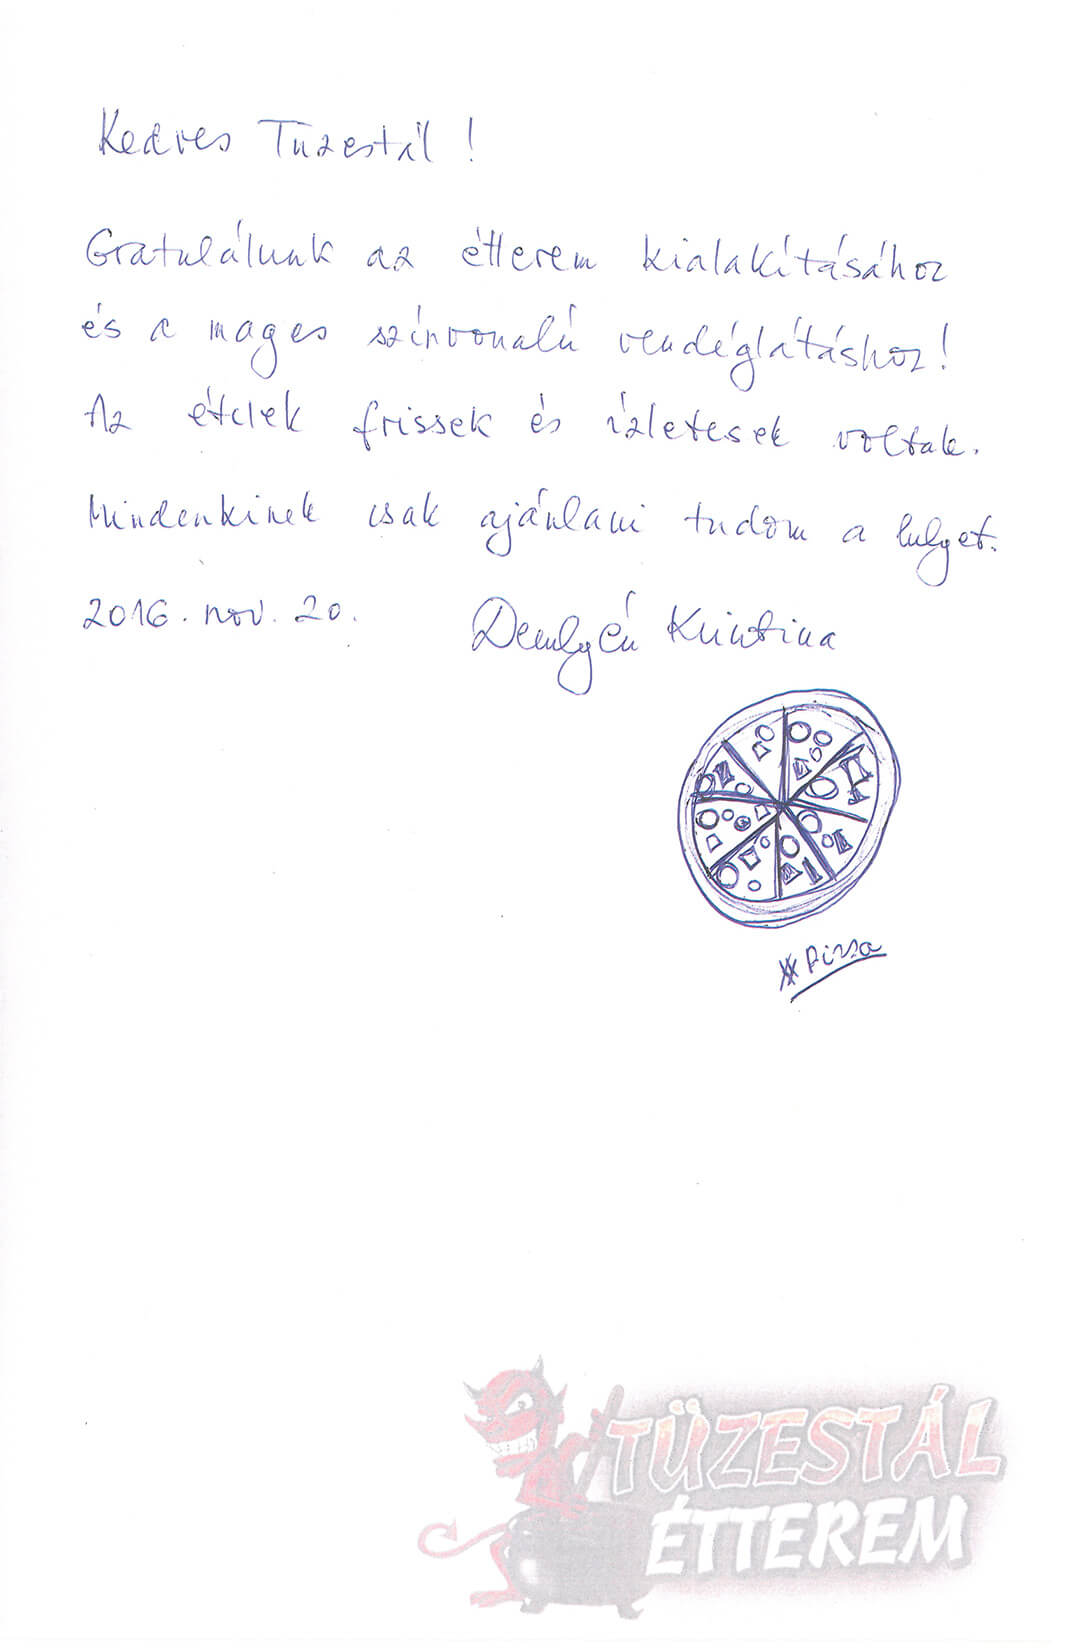 Kedves Tüzestál!
Gratulálunk az étterem kialakításához
és a mages színvonalú vendéglátáshoz!
Az ételek frissek és ízletesek voltak.
Mindenkinek csak ajánlani tudom a helyet.
2016. nov. 20.
Krisztina
Pizza
TÜZESTÁL
ÉTTEREM